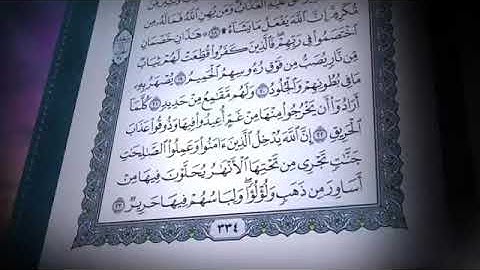 مُّكْرِمٍ إِنَّ ٱللَّهَ يَفْعَلُ مَا يَشَآءُ ۩ ١٨ هَٰذَانِ خَصْمَانِ
ٱخْتَصَمُوا۟ فِى رَبِّهِمْ فَٱلَّذِينَ كَفَرُوا۟ قُطِّعَتْ لَهُمْ ثِيَابٌ
مِّن نَّارٍ يُصَبُّ مِن فَوْقِ رُءُوسِهِمُ ٱلْحَمِيمُ ١٩ يُصْهَرُ بِهِۦ
مَا فِى بُطُونِهِمْ وَٱلْجُلُودُ ٢٠ وَلَهُم مَّقَٰمِعُ مِنْ حَدِيدٍ ٢١ كُلَّمَآ
أَرَادُوٓا۟ أَن يَخْرُجُوا۟ مِنْهَا مِنْ غَمٍّ أُعِيدُوا۟ فِيهَا وَذُوقُوا۟ عَذَابَ
ٱلْحَرِيقِ ٢٢ إِنَّ ٱللَّهَ يُدْخِلُ ٱلَّذِينَ ءَامَنُوا۟ وَعَمِلُوا۟ ٱلصَّٰلِحَٰتِ
جَنَّٰتٍ تَجْرِى مِن تَحْتِهَا ٱلْأَنْهَٰرُ يُحَلَّوْنَ فِيهَا مِنْ
أَسَاوِرَ مِن ذَهَبٍ وَلُؤْلُؤًا وَلِبَاسُهُمْ فِيهَا حَرِيرٌ ٢٣
٣٣٤